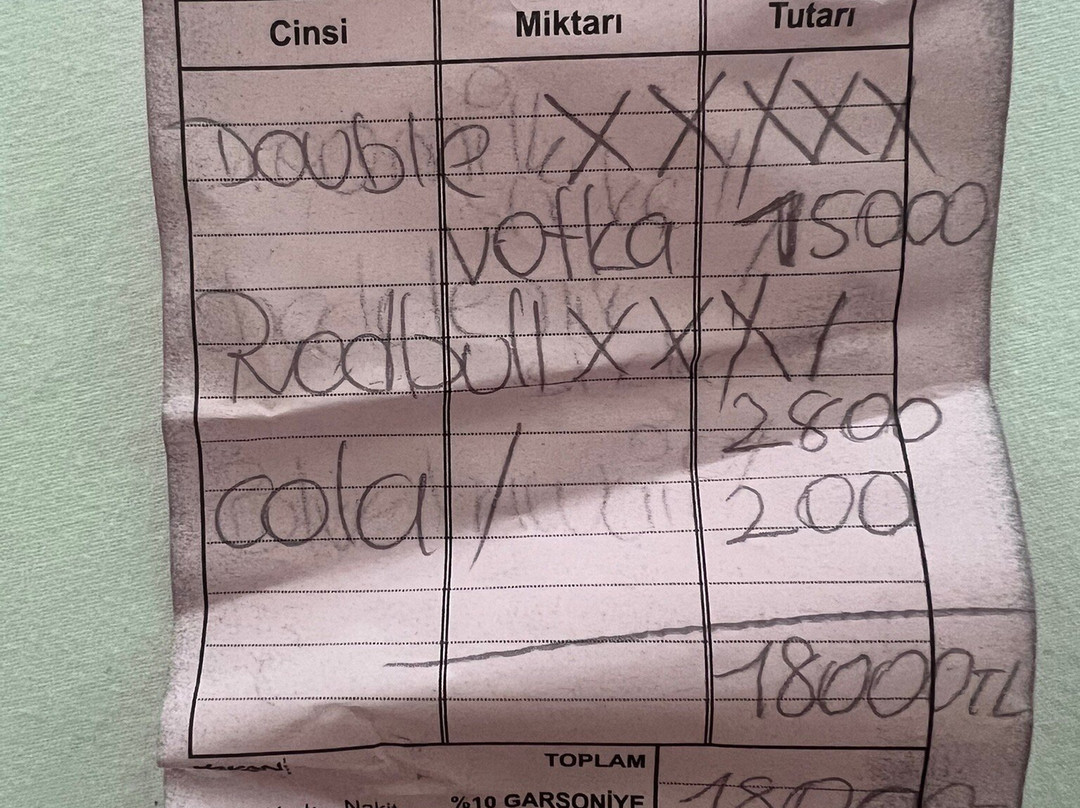 Cinsi Miktarı Tutarı
Double X X X X X
Vofka 15000
Redbull X X X /
2800
cola / 200
18000TL
TOPLAM
%10 GARSONİYE